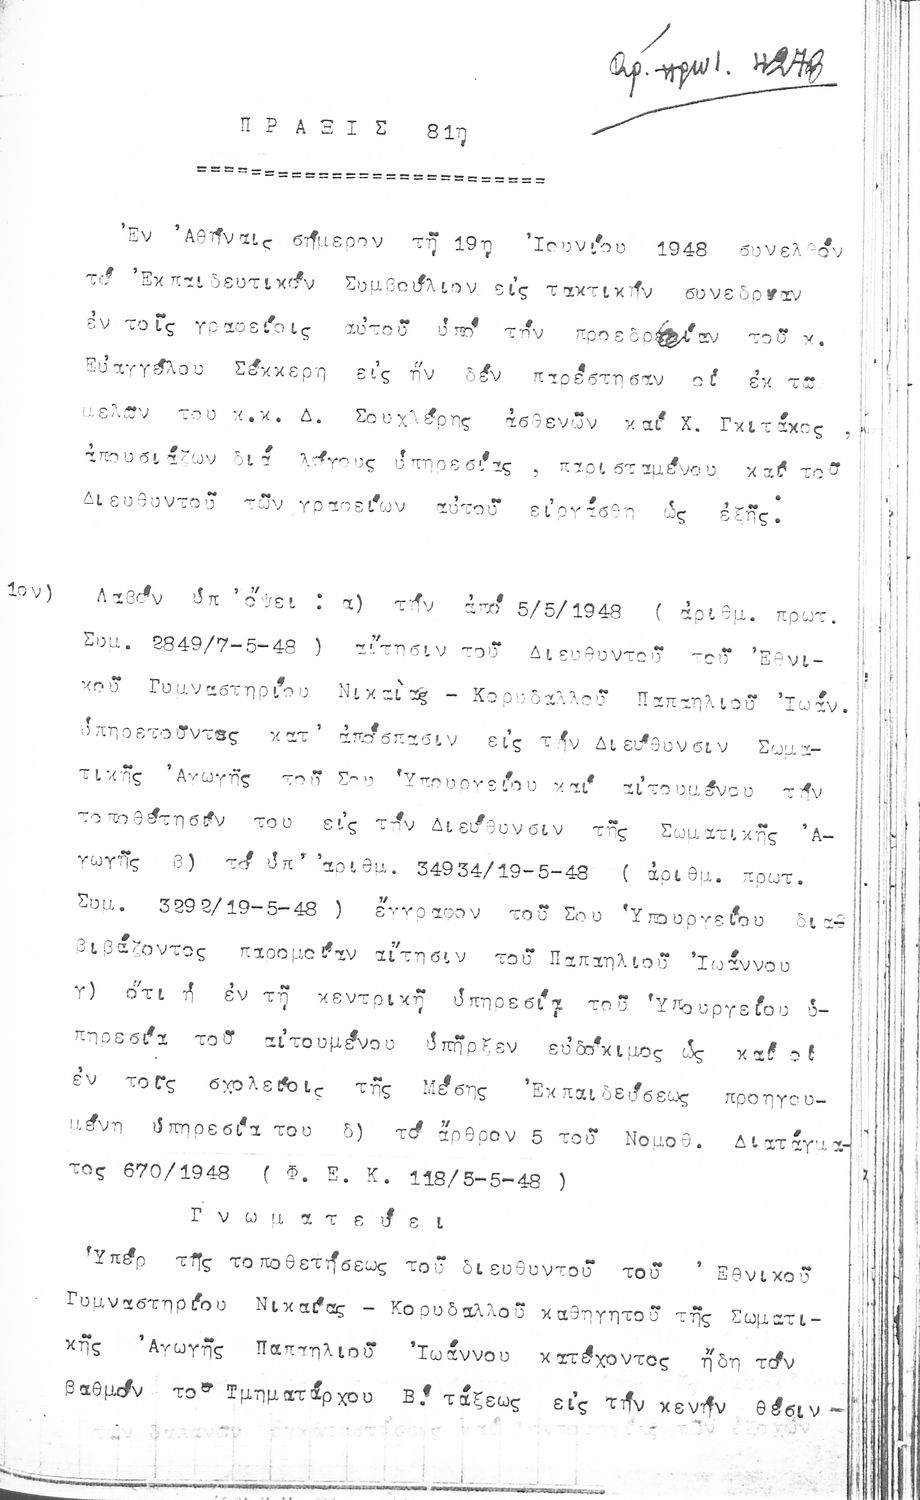 Ἀρ. πρωτ. 4278
ΠΡΑΞΙΣ 81η
==========================
Ἐν Ἀθήναις σήμερον τῇ 19η Ἰουνίου 1948 συνελθόν
τό Ἐκπαιδευτικόν Συμβούλιον εἰς τακτικήν συνεδριαν
ἐν τοῖς γραφείοις αὐτοῦ ὑπό τήν προεδρείαν τοῦ κ.
Εὐαγγέλου Σέκκερη εἰς ἥν δέν παρέστησαν οἱ ἐκ τω
μελῶν του κ.κ. Δ. Σουχλέρης ἀσθενῶν καί Χ. Γκιτάκος ,
ἀπουσιάζων διά λόγους ὑπηρεσίας , παρισταμένου καί τοῦ
Διευθυντοῦ τῶν γραφείων αὐτοῦ εἰργάσθη ὡς ἑξῆς:
1ον) Λαβόν ὑπ'ὄψει : α) τήν ἀπό 5/5/1948 ( ἀριθμ. πρωτ.
Συμ. 2849/7-5-48 ) αἴτησιν τοῦ Διευθυντοῦ τοῦ Ἐθνι-
κοῦ Γυμναστηρίου Νικαίας - Κορυδαλλοῦ Παπαηλιοῦ Ἰωάν.
ὑπηρετοῦντος κατ' ἀπόσπασιν εἰς τήν Διεύθυνσιν Σωμα-
τικῆς Ἀγωγῆς τοῦ Σου Ὑπουργείου καί αἰτουμένου τήν
τοποθέτησίν του εἰς τήν Διεύθυνσιν τῆς Σωματικῆς Ἀ-
γωγῆς β) τό ὑπ' ἀριθμ. 34934/19-5-48 ( ἀριθμ. πρωτ.
Συμ. 3292/19-5-48 ) ἔγγραφον τοῦ Σου Ὑπουργείου δια
βιβάζοντος παρομοίαν αἴτησιν τοῦ Παπαηλιοῦ Ἰωάννου
γ) ὅτι ἡ ἐν τῇ κεντρικῇ ὑπηρεσίᾳ τοῦ Ὑπουργείου ὑ-
πηρεσία τοῦ αἰτουμένου ὑπῆρξεν εὐδόκιμος ὡς καί οἱ
ἐν τοῖς σχολείοις τῆς Μέσης Ἐκπαιδεύσεως προηγου-
μένη ὑπηρεσία του δ) τό ἄρθρον 5 τοῦ Νομοθ. Διατάγμα-
τος 670/1948 ( Φ. Ε. Κ. 118/5-5-48 )
Γνωματεύει
Ὑπέρ τῆς τοποθετήσεως τοῦ διευθυντοῦ τοῦ Ἐθνικοῦ
Γυμναστηρίου Νικαίας - Κορυδαλλοῦ καθηγητοῦ τῆς Σωματι-
κῆς Ἀγωγῆς Παπαηλιοῦ Ἰωάννου κατέχοντος ἤδη τόν
βαθμόν τοῦ Τμηματάρχου Β! τάξεως εἰς τήν κενήν θέσιν -